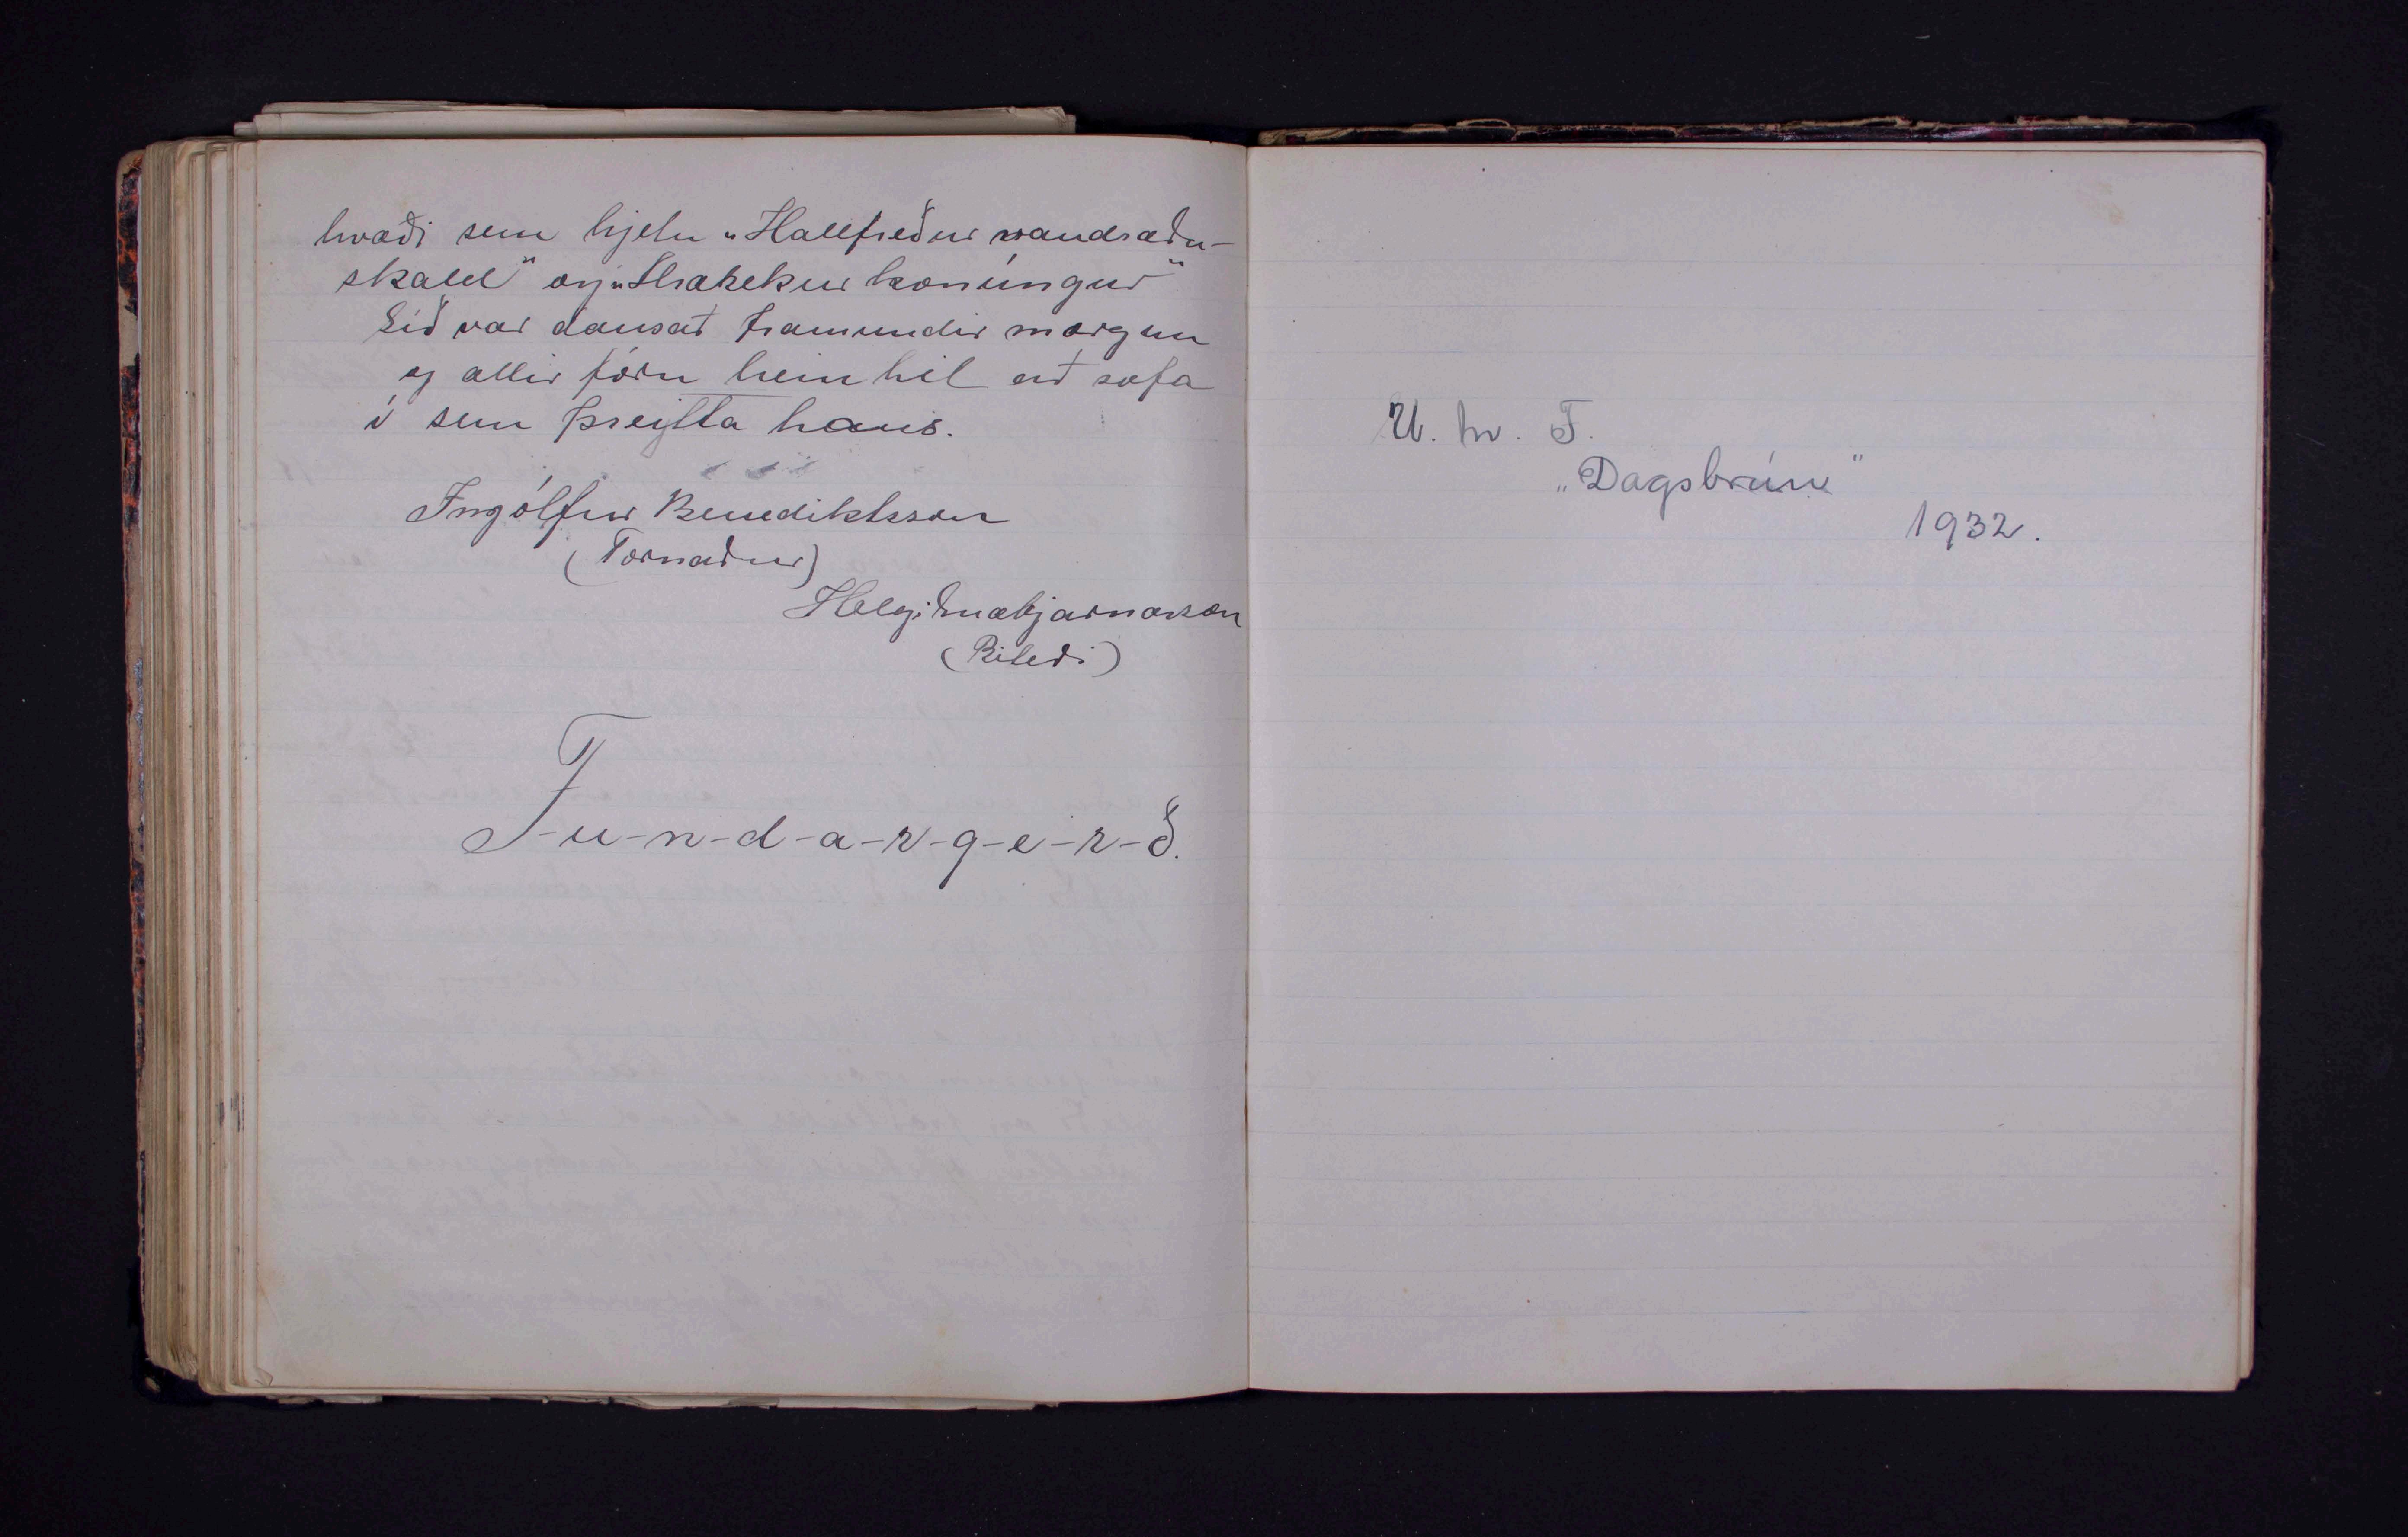 kvæði sem hjetu „Hallfreður vandræða-
skáld" og „Hrærekur konúngur"
Síð var dansað framundir morgun
og allir fóru heim til að sofa
úr sem þreytta hans.
Ingólfur Benediktsson
(Formaður)
Helgi Snæbjarnarson
(Ritari)
F-u-n-d-a-r-g-e-r-ð.
U. M. F.
„Dagsbrún"
1932.